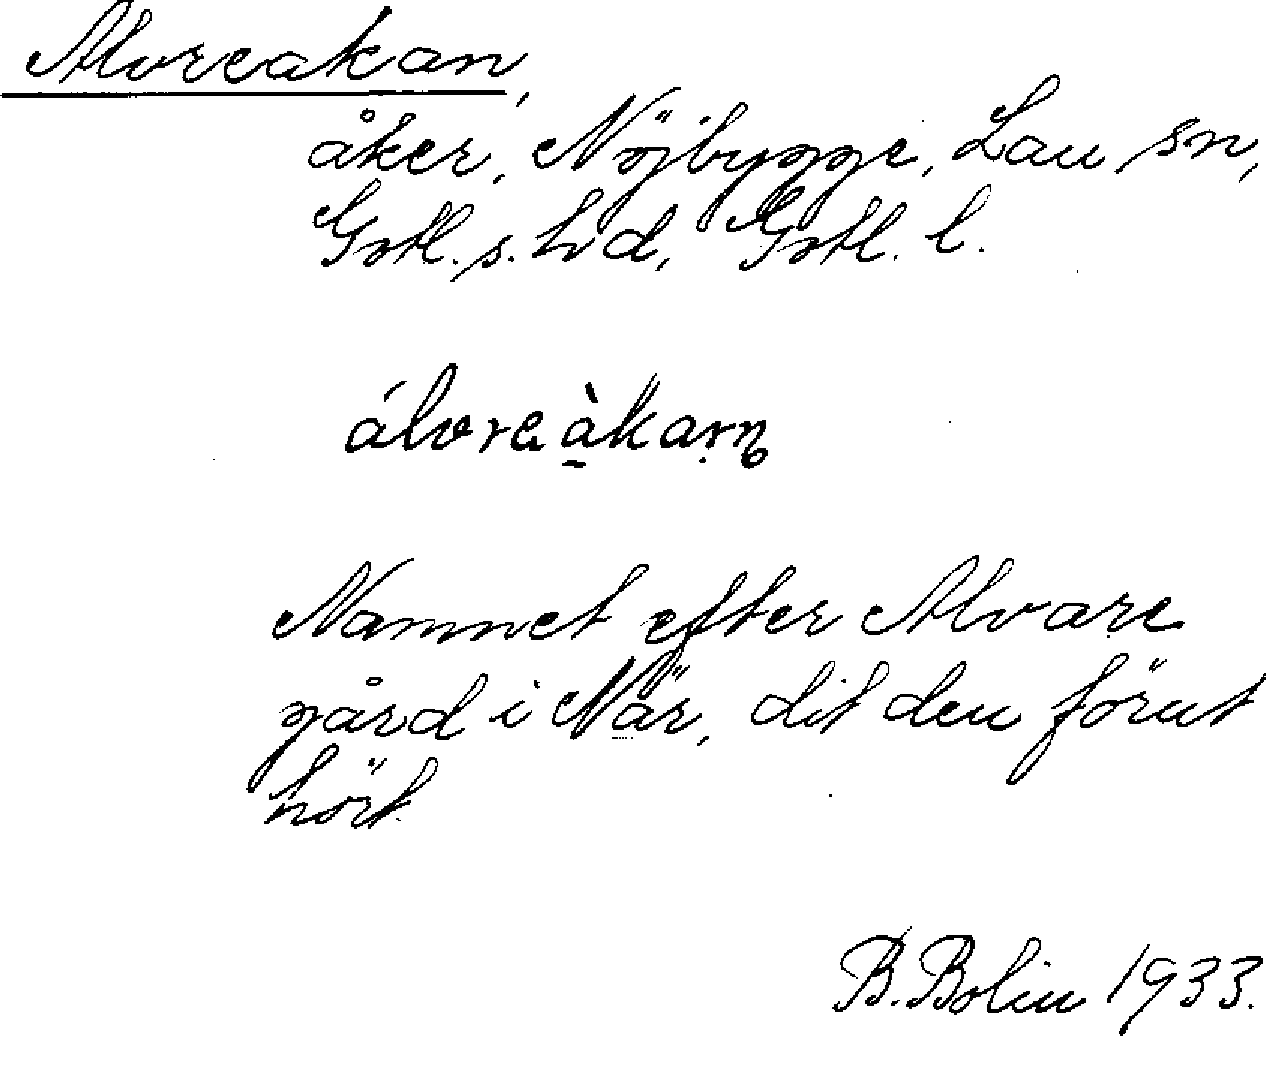 Alvreakan,
åker, Nöjbygge, Lau sn,
Gotl. s. hd, Gotl. l.
álvreàkarn
Namnet efter Alvare
gård i När, dit den förut
hört.
B. Bolin 1933.